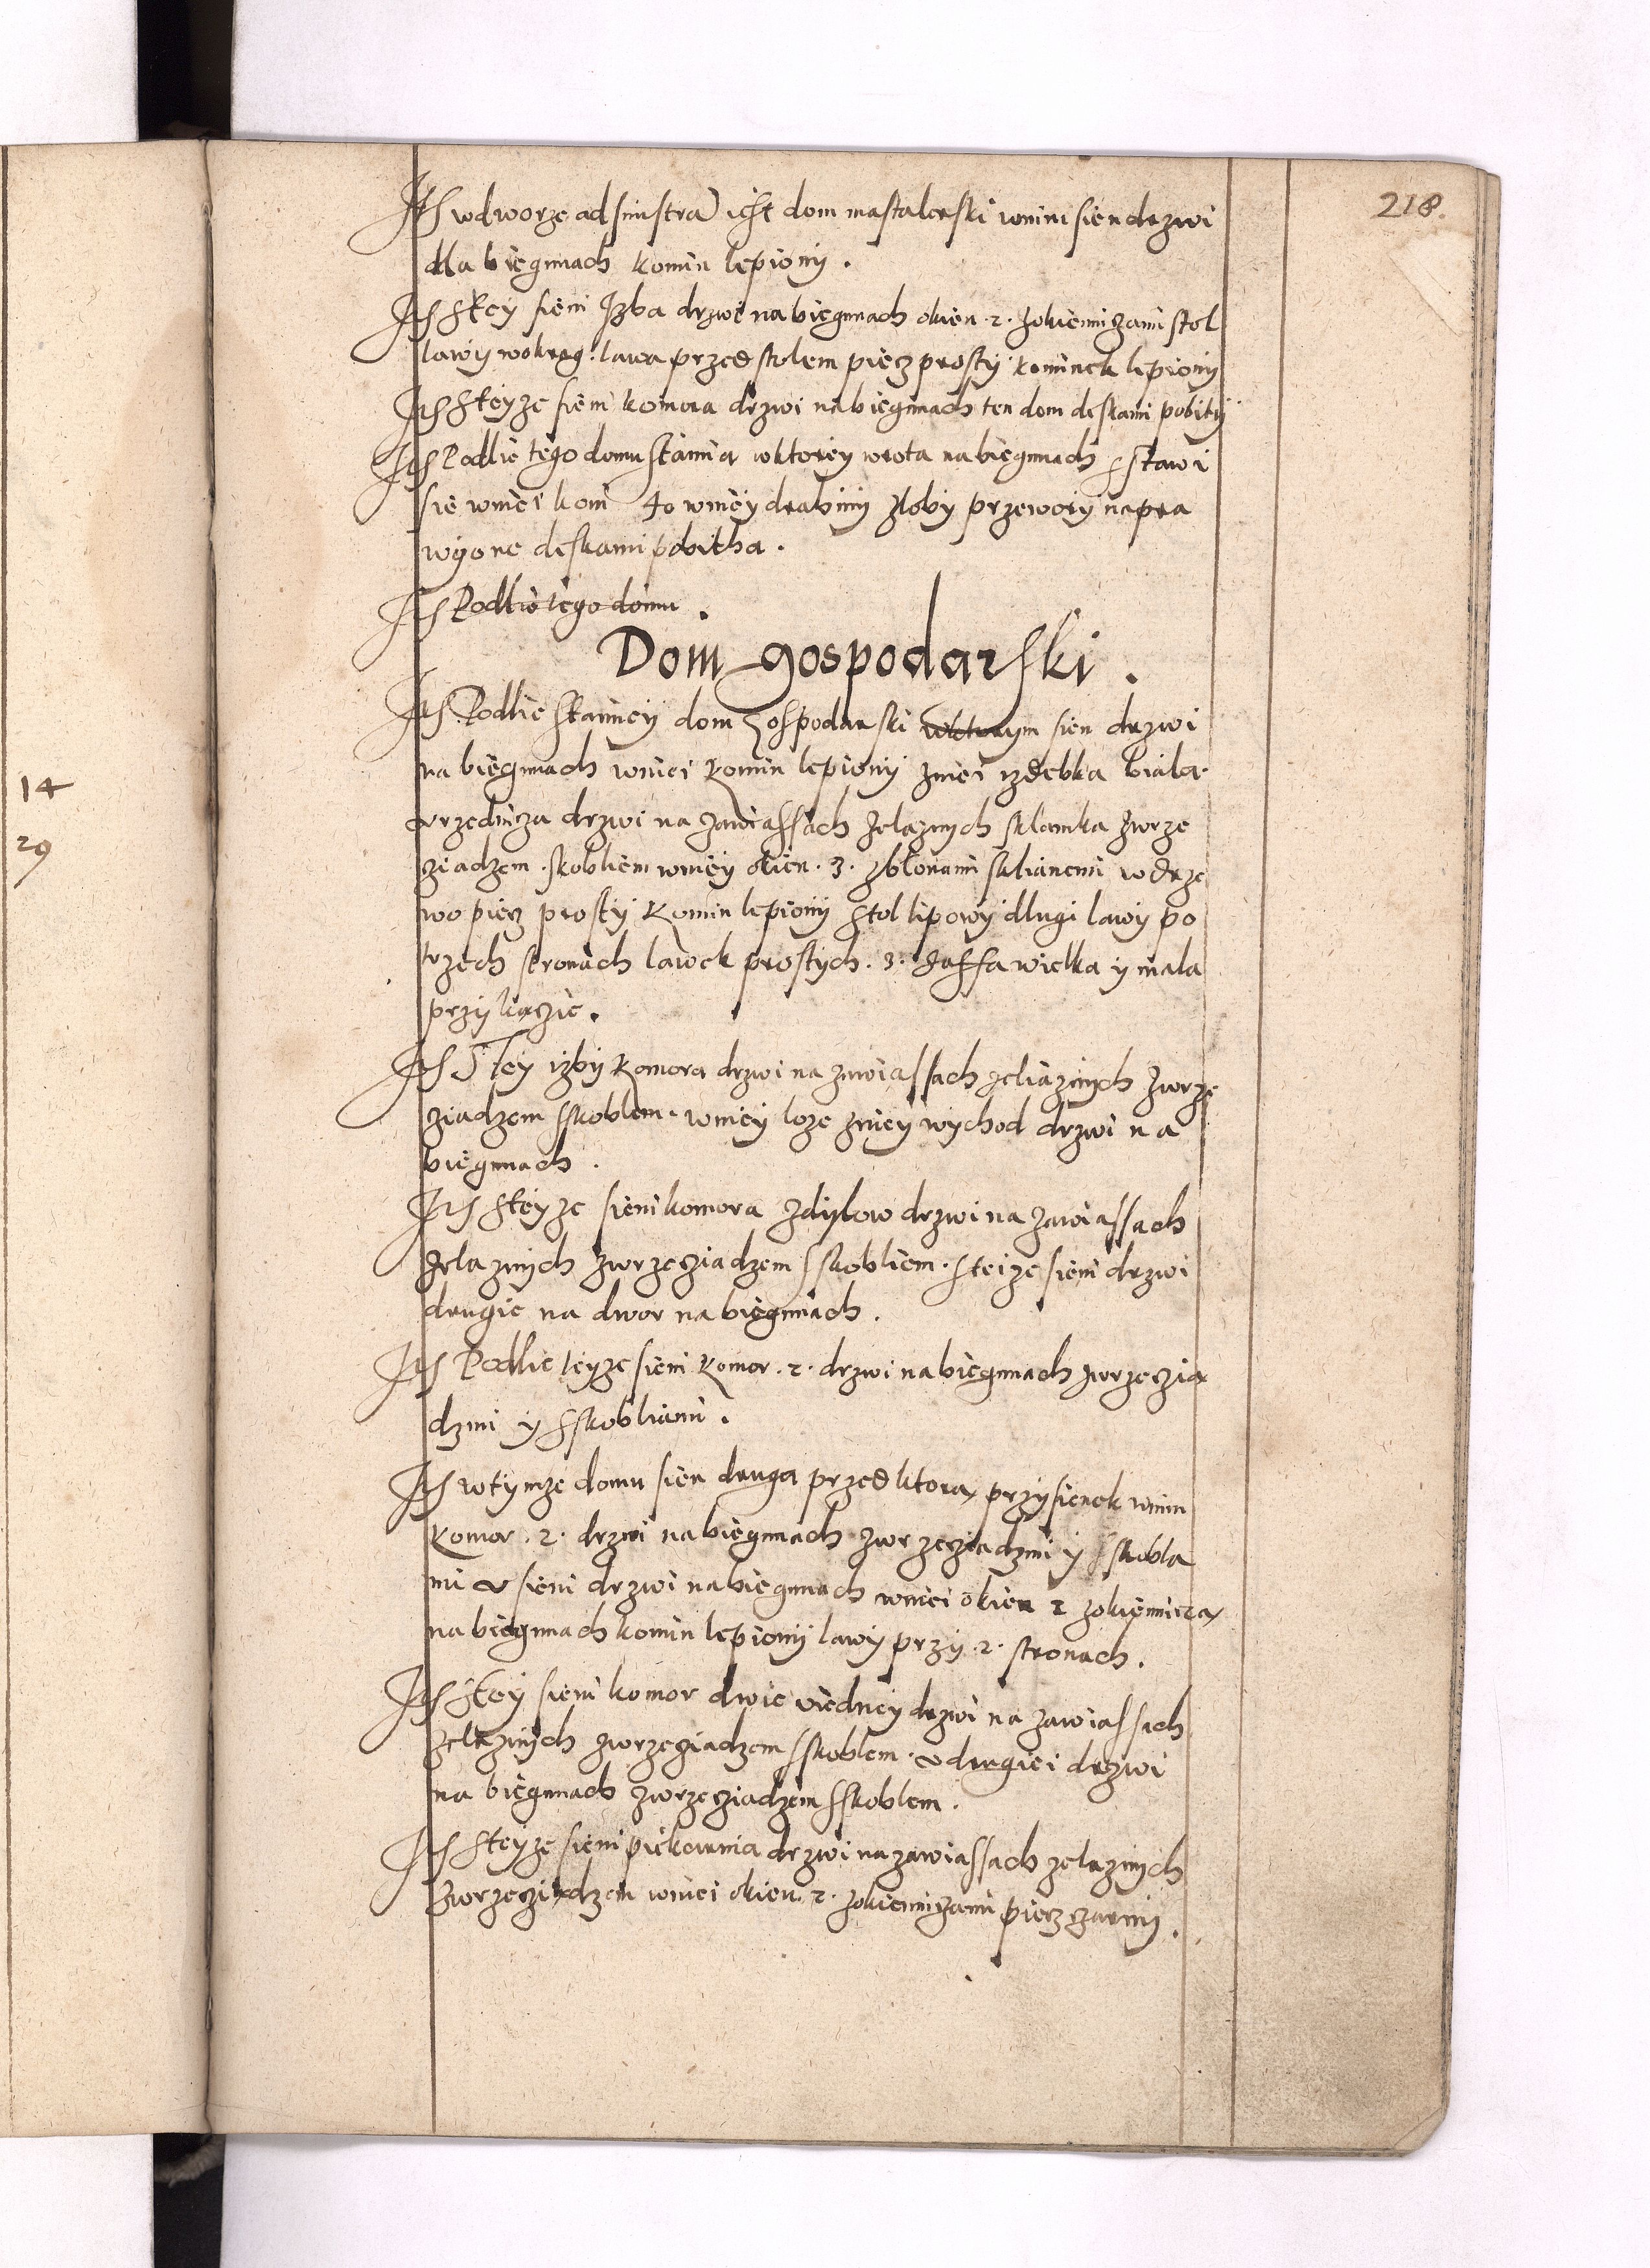 218.
Its wdworze ad sinistra iest dom mastalerski wnim sien drzwi
dla biegunach komin lepiony .
Its stey sieni Izba drzwi na biegunach okien . 2 . zokieniczami stol
lawy wokrag : lawa przed stolem piecz prosty kominek lepiony
Its steyze sieni komora drzwi na biegunach ten dom deskami pobity
Its Podlie tego domu stainia wktorey wrota na biegunach sstawi
sie wniei koni 40 wniey drabiny zloby przewory napra
wyone deskami pobitha .
Its Podlie tego domu .
Dom gospodarski .
Its Podlie stainey dom gospodarski wktorym sien drzwi
na biegunach wniei komin lepiony zniei izdebka biala
vrzednicza drzwi na zawiassach zelaznych sklamka zwrze
cziadzem . skobliem wniey okien . 3 . zblonami sklianemi wdrze
wo piecz prosty komin lepiony stol lipowy dlugi lawy po
trzech stronach lawek prostych . 3 . szaffa wielka y mala
przy kaczie .
Its S tey izby komora drzwi na zawiassach zeliaznych zwrze
cziadzem sskoblem . wniey loze zniey wychod drzwi na
biegunach .
Its steyze sieni komora zdylow drzwi na zawiassach
zelaznych zwrzecziadzem sskobliem . steize sieni drzwi
drugie na dwor na biegunach .
Its Podlie teyze sieni komor . 2 . drzwi na biegunach zwrzeczia
dzmi y sskobliami .
Its wtymze domu sien druga przed ktora przysienek wnim
komor . 2 . drzwi na biegunach zwrzecziadzmi y sskobla
mi v sieni drzwi na biegunach wniei okien 2 zokiennicza
na biegunach komin lepiony lawy przy . 2 . stronach .
Its stey sieni komor dwie viedney drzwi na zawiassach
zelaznych zwrzecziadzem sskoblem . vdrugiei drzwi
na biegunach zwrzecziadzem sskoblem .
Its steyze sieni piekarnia drzwi na zawiassach zelaznych
zwrzecziadzem wniei okien . 2 . zokieniczami piecz czarny .
14
29